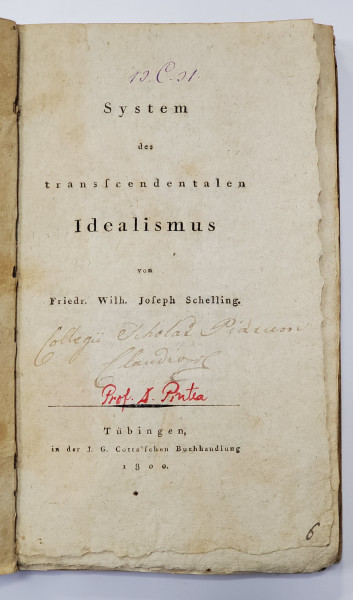 19. C. 31.
System
des
transſcendentalen
Idealismus
von
Friedr. Wilh. Joſeph Schelling.
Collegii Scholar Piarum
Claudiopol
Prof. D. Pintea
Tübingen,
in der J. G. Cotta'ſchen Buchhandlung
1800.
6